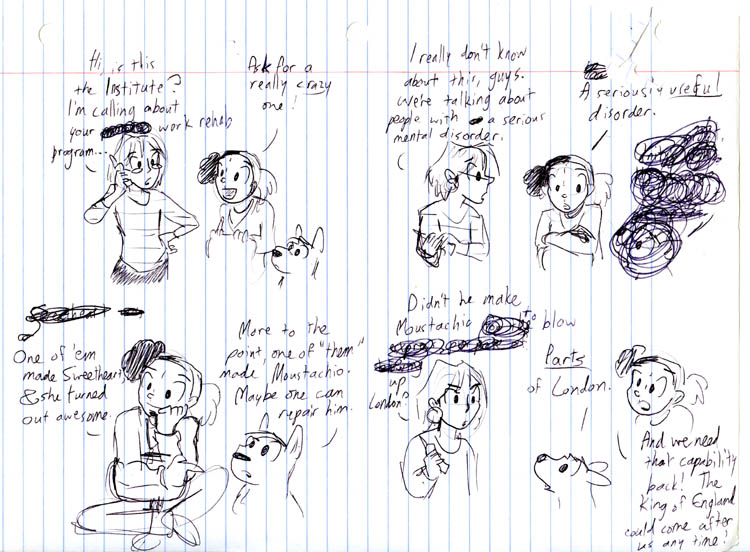 Hi, is this
the Institute?
I'm calling about
your work rehab
program...
Ask for a
really crazy
one!
I really don't know
about this, guys.
We're talking about
people with a serious
mental disorder.
A seriously useful
disorder.
One of 'em
made Sweetheart,
& she turned
out awesome.
More to the
point, one of "them"
made Moustachio.
Maybe one can
repair him.
Didn't he make
Moustachio to blow
up
London?
Parts
of London.
And we need
that capability
back! The
King of England
could come after
us any time!